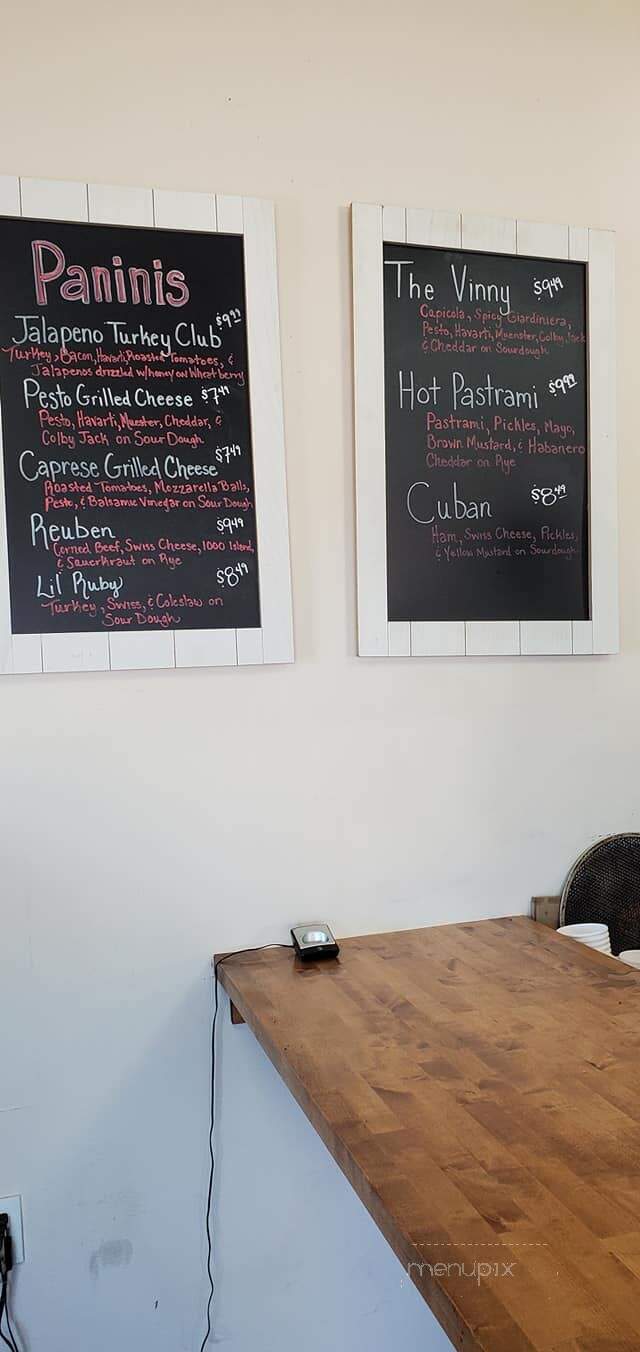 Paninis
Jalapeno Turkey Club $9.99
Turkey, Bacon, Havarti, Roasted Tomatoes, &
Jalapenos drizzled w/honey on Wheatberry
Pesto Grilled Cheese $7.49
Pesto, Havarti, Muenster, Cheddar, &
Colby Jack on Sour Dough
Caprese Grilled Cheese $7.49
Roasted Tomatoes, Mozzarella Balls,
Pesto, & Balsamic Vinegar on Sour Dough
Reuben $9.49
Corned Beef, Swiss Cheese, 1000 Island,
& Sauerkraut on Rye
Lil' Ruby $8.49
Turkey, Swiss, & Coleslaw on
Sour Dough
The Vinny $9.49
Capicola, Spicy Giardiniera,
Pesto, Havarti, Muenster, Colby Jack
& Cheddar on Sourdough
Hot Pastrami $9.99
Pastrami, Pickles, Mayo,
Brown Mustard, & Habanero
Cheddar on Rye
Cuban $8.49
Ham, Swiss Cheese, Pickles,
& Yellow Mustard on Sourdough
menupix